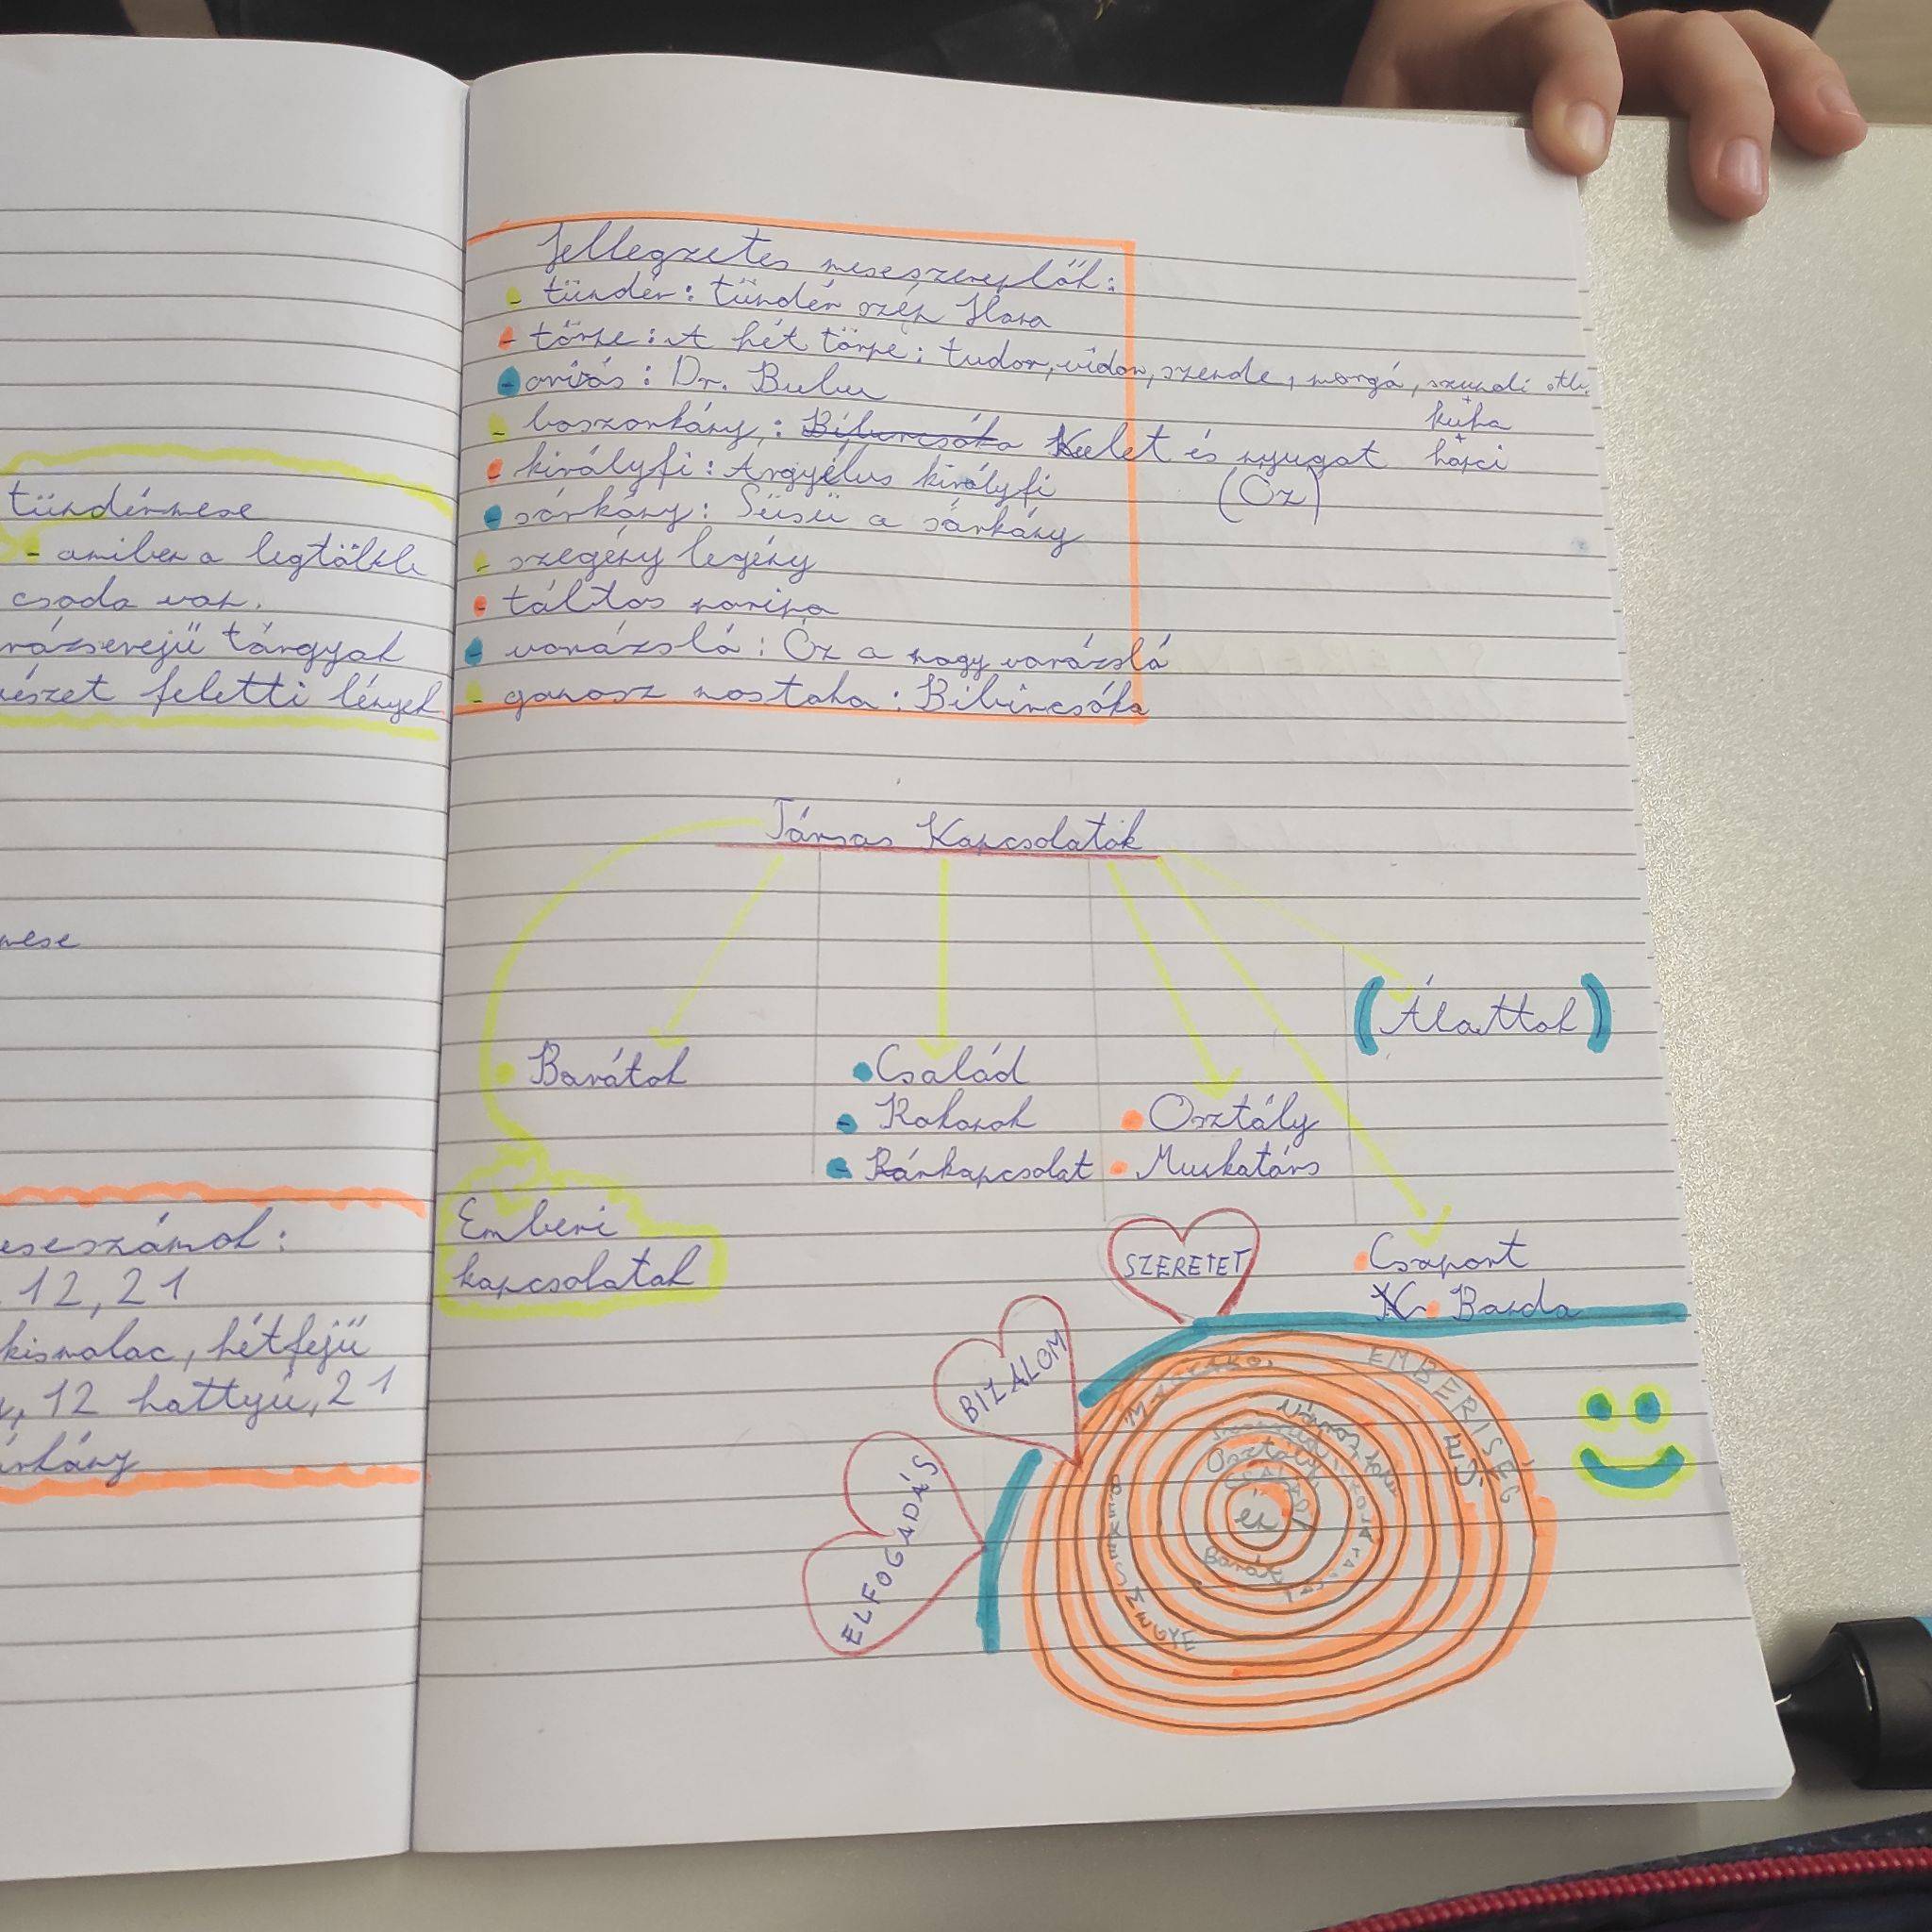 tündérmese
- amiben a legtöbb
csoda van.
rázserejű tárgyak
észet feletti lények
mese
eseszámok:
12, 21
kismalac, hétfejű
12 hattyú, 21
árkány
Jellegzetes meseszereplők:
- tündér: tündér szép Ilona
- törpe: A hét törpe: tudor, vidor, szende, morgó, szundi
kuka
+
hapci
- óriás: Dr. Bubu
- boszorkány: Bibircsóka Kelet és nyugat
(Óz)
- királyfi: Árgyélus királyfi
- sárkány: Süsü a sárkány
- szegény legény
- táltos paripa
- varázsló: Óz a nagy varázsló
- gonosz mostoha: Bibircsóka
Társas Kapcsolatok
(Álattok)
Barátok
Család
- Rokonok
- Párkapcsolat
Osztály
Munkatárs
Emberi
kapcsolatok
Csoport
Banda
SZERETET
BIZALOM
ELFOGADÁS
EMBERISÉG
Osztály
CSALÁD
én
Barátok
MEGYE